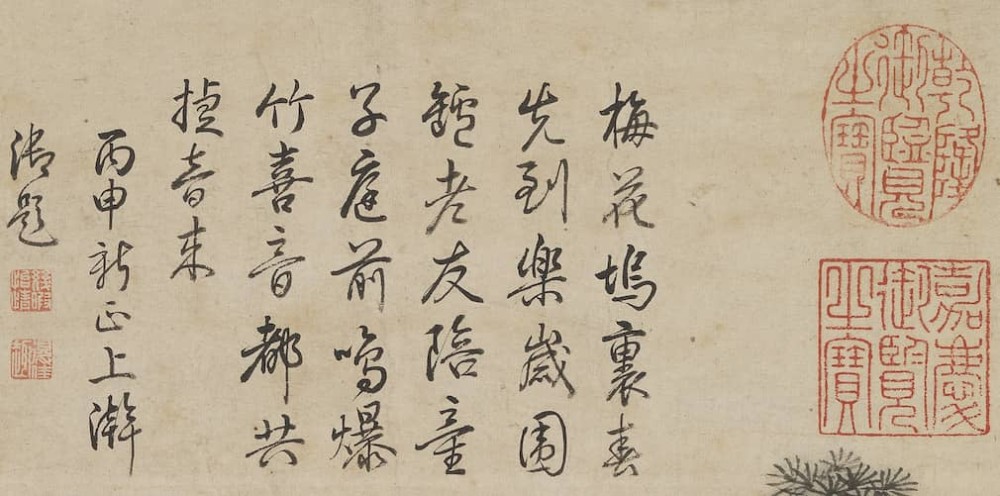 乾隆御覽之寶
嘉慶御覽之寶
梅花塢裏春
先到樂歲圍
鑪老友陪童
子庭前鳴爆
竹喜音都共
捷音來
丙申新正上澣
御題